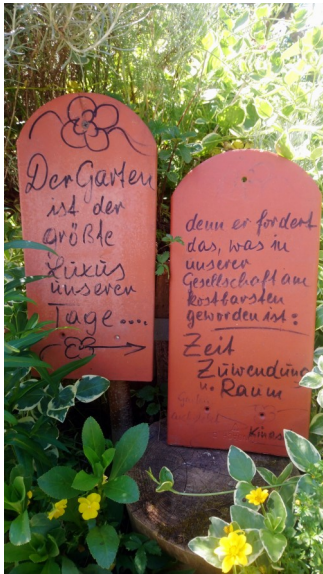 Der Garten
ist der
größte
Luxus
unserer
Tage....
denn er fordert
das, was in
unserer
Gesellschaft am
kostbarsten
geworden ist:
Zeit
Zuwendung
u. Raum